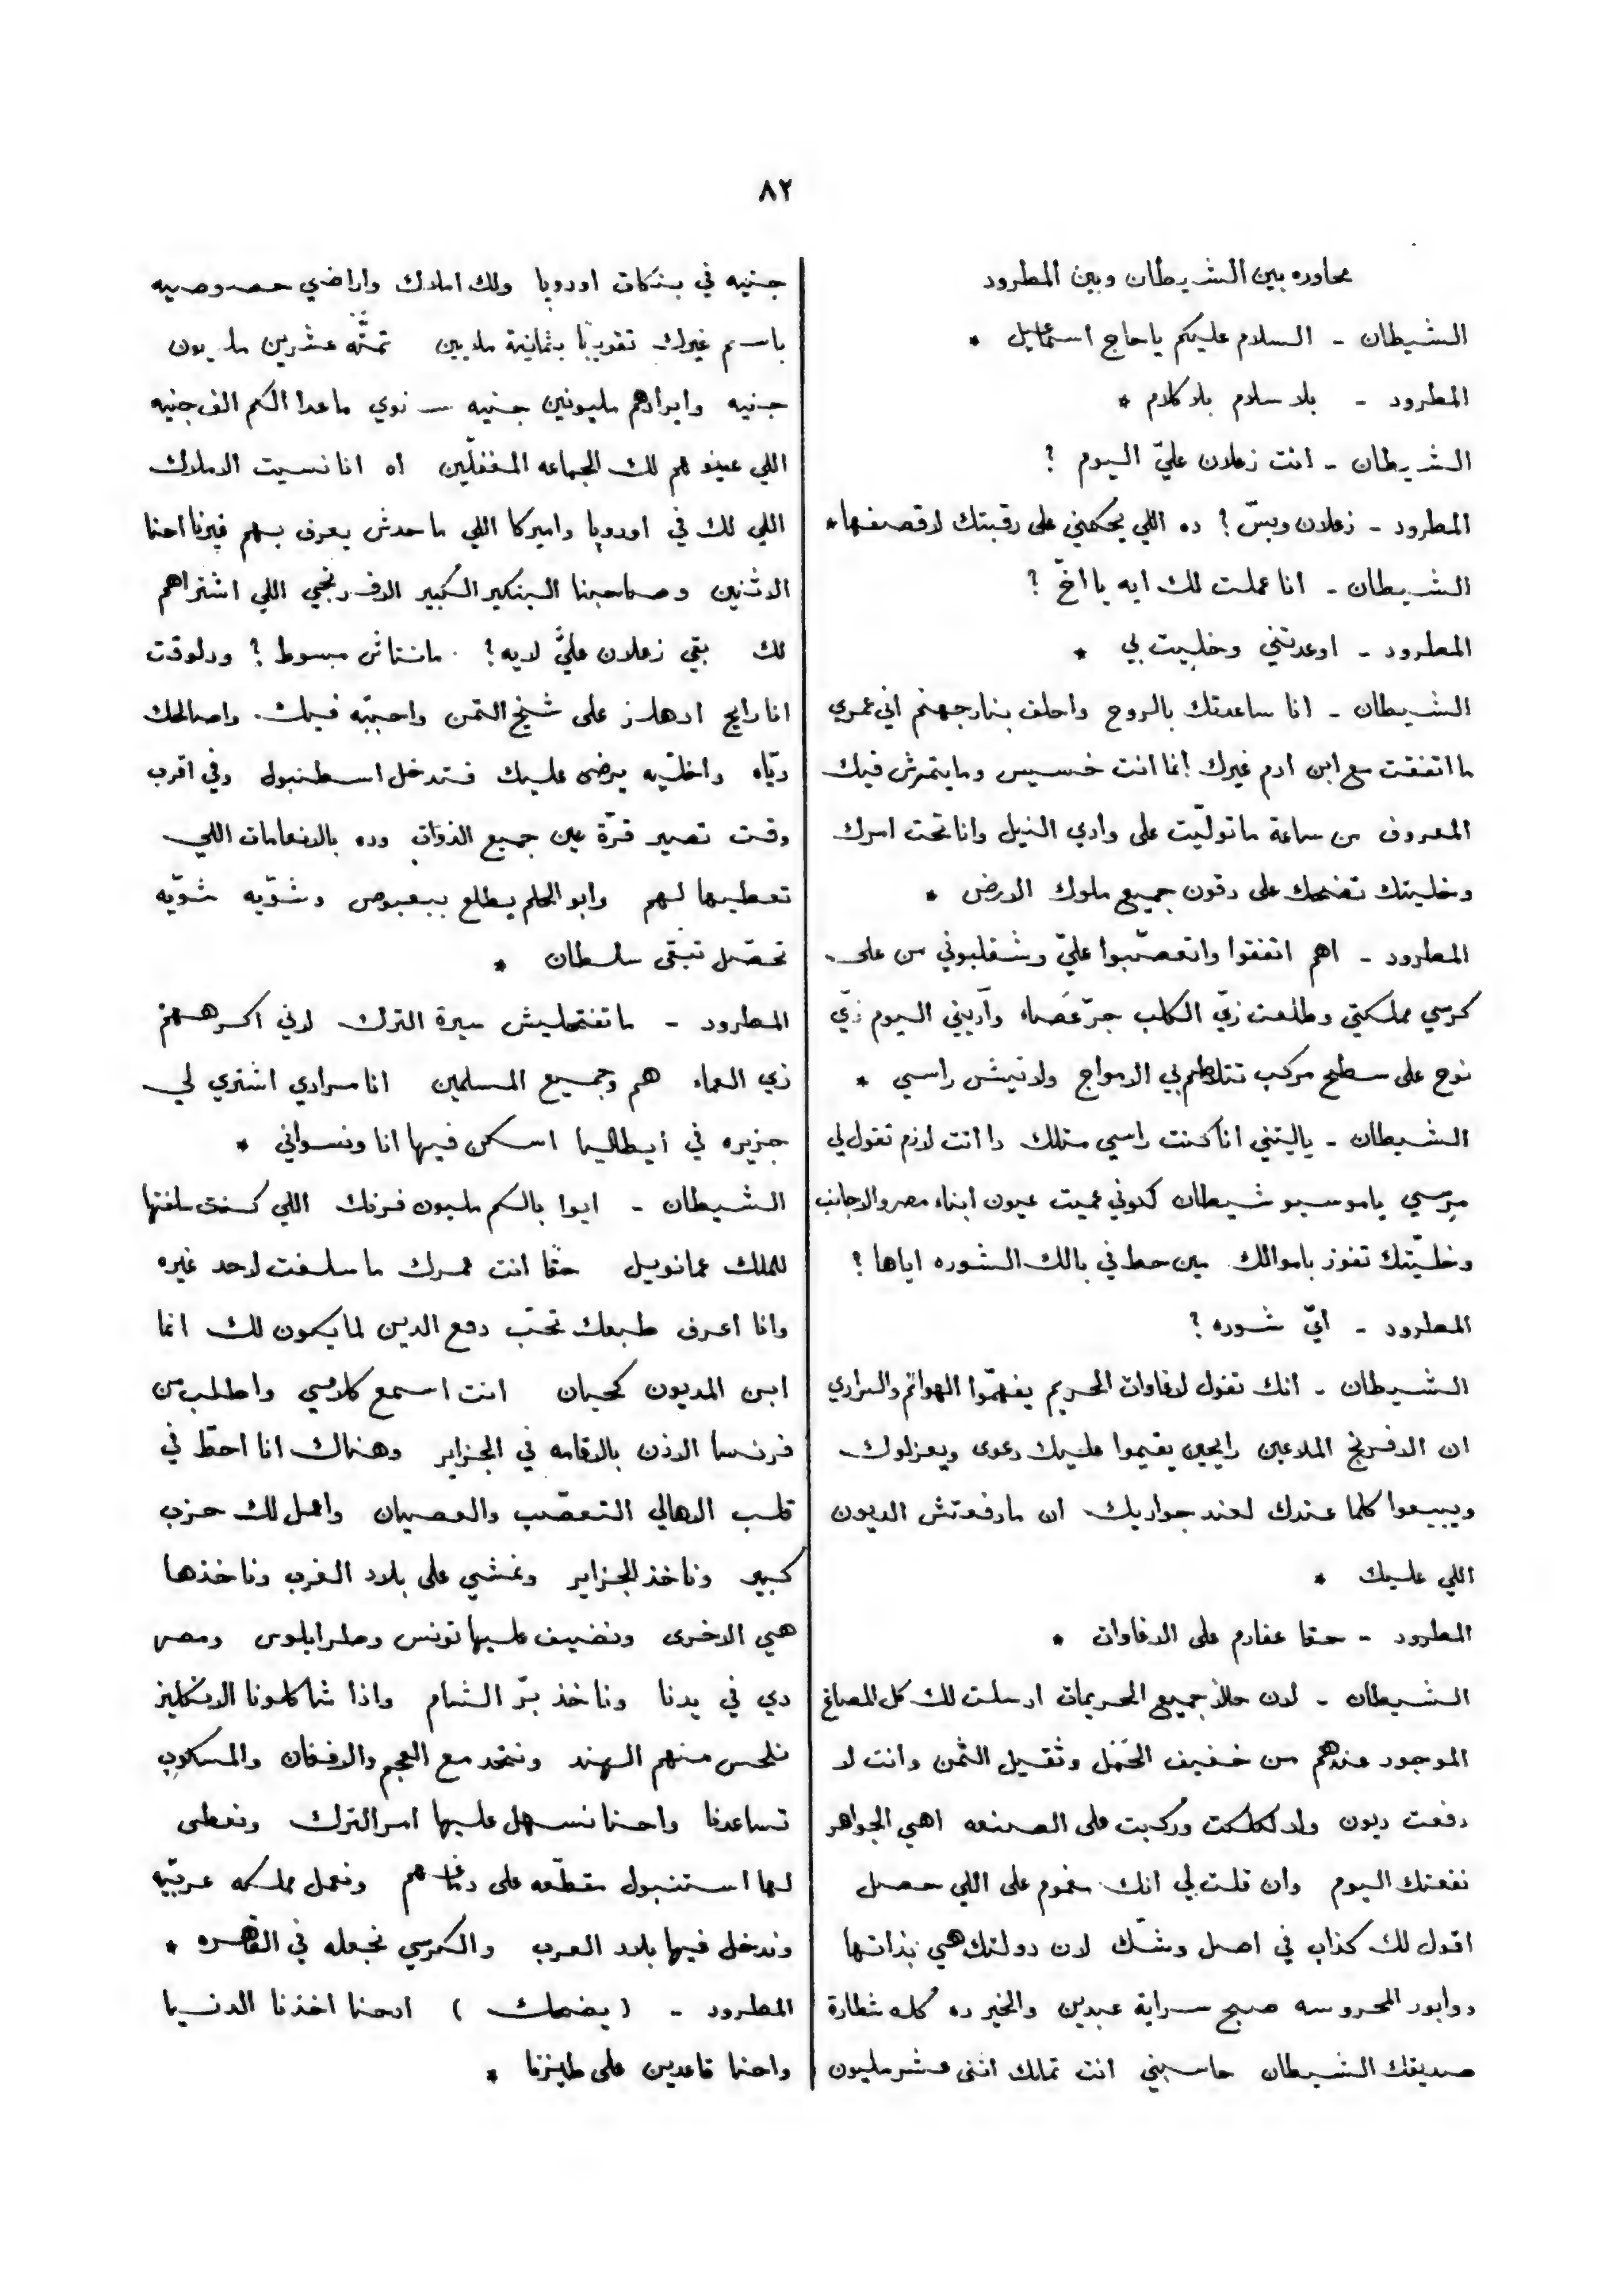 ٨٢
محاوره بين الشيطان وبين المطرود
الشيطان - السلام عليكم ياحاج اسماعيل *
المطرود - بلا سلام بلا كلام *
الشيطان - انت زعلان عليّ اليوم ؟
المطرود - زعلان وبسّ ؟ ده اللي يحكمني على رقبتك لاقصفها *
الشيطان - انا عملت لك ايه يا اخّ ؟
المطرود - اوعدتني وخليت بي *
الشيطان - انا ساعدتك بالروح واحلف بنار جهنم اني عمري
ما اتفقت مع ابن ادم غيرك انما انت خسيس وما يتمرش فيك
المعروف من ساعة ما تولّيت على وادي النيل وانا تحت امرك
وخليتك تضحك على دقون جميع ملوك الارض *
المطرود - اهم اتفقوا واتعصّبوا عليّ وشقلبوني من على
كرسي مملكتي وطلعت زيّ الكلب جرّ عَصَاه وآديني اليوم زيّ
نوح على سطح مركب تتلاطم بي الامواج ولا نيش راسي *
الشيطان - ياليتني انا كنت راسي مثلك دا انت لازم تقول لي
مِرسي ياموسيو شيطان كدوني عميت عيون ابناء مصر والاجانب
وخليّتك تفوز باموالك مين حط في بالك الشوره اياها ؟
المطرود - ايّ شوره ؟
الشيطان - انك تقول لاغاوات الحريم يفهمّوا الهوانم والسراري
ان الافرنج الملاعين رايحين يقيموا عليك دعوى ويعزلوك
ويبيعوا كلما عندك لعند جواريك ان ما دفعتش الديون
اللي عليك *
المطرود - حقا عفارم على الاغاوات *
الشيطان - لان حالاً جميع الحريمات ارسلت لك كل المصاغ
الموجود عندهم من خفيف الحَمْل وثقيل الثمن وانت لا
دفعت ديون ولا لكلكت وركبت على الصنعه اهي الجواهر
نفعتك اليوم وان قلت لي انك مغموم على اللي حصل
اقول لك كذاب في اصل وشّك لان دولتك هي بذاتها
دوابور المحروسه صبح سراية عبدين والخير ده كله شطارة
صديقك الشيطان حاسبني انت تملك اثنى عشر مليون
جنيه في بنكات اوروبا ولك املاك واراضي خصوصيه
باسم غيرك تقريبًا بثمانية ملايين تمتّه عشرين مليون
جنيه وايرادهم مليونين جنيه سنوي ماعدا الكم الف جنيه
اللي عينوهم لك الجماعه المغفلّين اه انا نسيت الاملاك
اللي لك في اوروبا واميركا اللي ماحدش يعرف بهم غيرنا احنا
الاثنين وصاحبنا البنكير الكبير الافرنجي اللي اشتراهم
لك بقي زعلان عليَّ لايه ؟ مانتاش مبسوط ؟ ودلوقت
انا رايح ادهلز على شيخ التمن واحببّه فيك واصالحك
ويّاه واخلّيه يرضى عليك فتدخل اسطنبول وفي اقرب
وقت تصير قرّة عين جميع الذوات وده بالانعامات اللي
تعطيها لهم وابو الحلم يطلع ببعبوص وشوّيه شوّيه
تحصّل تبقى سلطان *
المطرود - ما تفتحليش سيرة الترك لاني اكرههم
زي العماء هم وجميع المسلمين انا مرادي اشتري لي
جزيره في أيطاليا اسكن فيها انا ونسواني *
الشيطان - ايوا بالكم مليون فرنك اللي كنت سلفتها
للملك عمانويل حقا انت عمرك ما سلفت لاحد غيره
وانا اعرف طبعك تحبّ دفع الدين لما يكون لك انما
ابن المديون كحيان انت اسمع كلامي واطلب من
فرنسا الاذن بالاقامه في الجزاير وهناك انا احطّ في
قلب الاهالي التعصّب والعصيان واعمل لك حزب
كبير وناخذ الجزاير ونمشي على بلاد الغرب وناخذها
هي الاخرى ونضيف عليها تونس وطرابلوس ومصر
دي في يدنا وناخذ برّ الشام واذا شاكلونا الانكليز
نلحس منهم الهند ونتحد مع العجم والافغان والمسكوب
تساعدنا واحنا نسهل عليها امر الترك ونعطى
لها استنبول مقطّعه على دقنهم ونعمل مملكه عربيّه
وندخل فيها بلاد العرب والكرسي نجعله في القاهره *
المطرود - ( يضحك ) ادحنا اخذنا الدنيا
واحنا قاعدين على طيزنا *